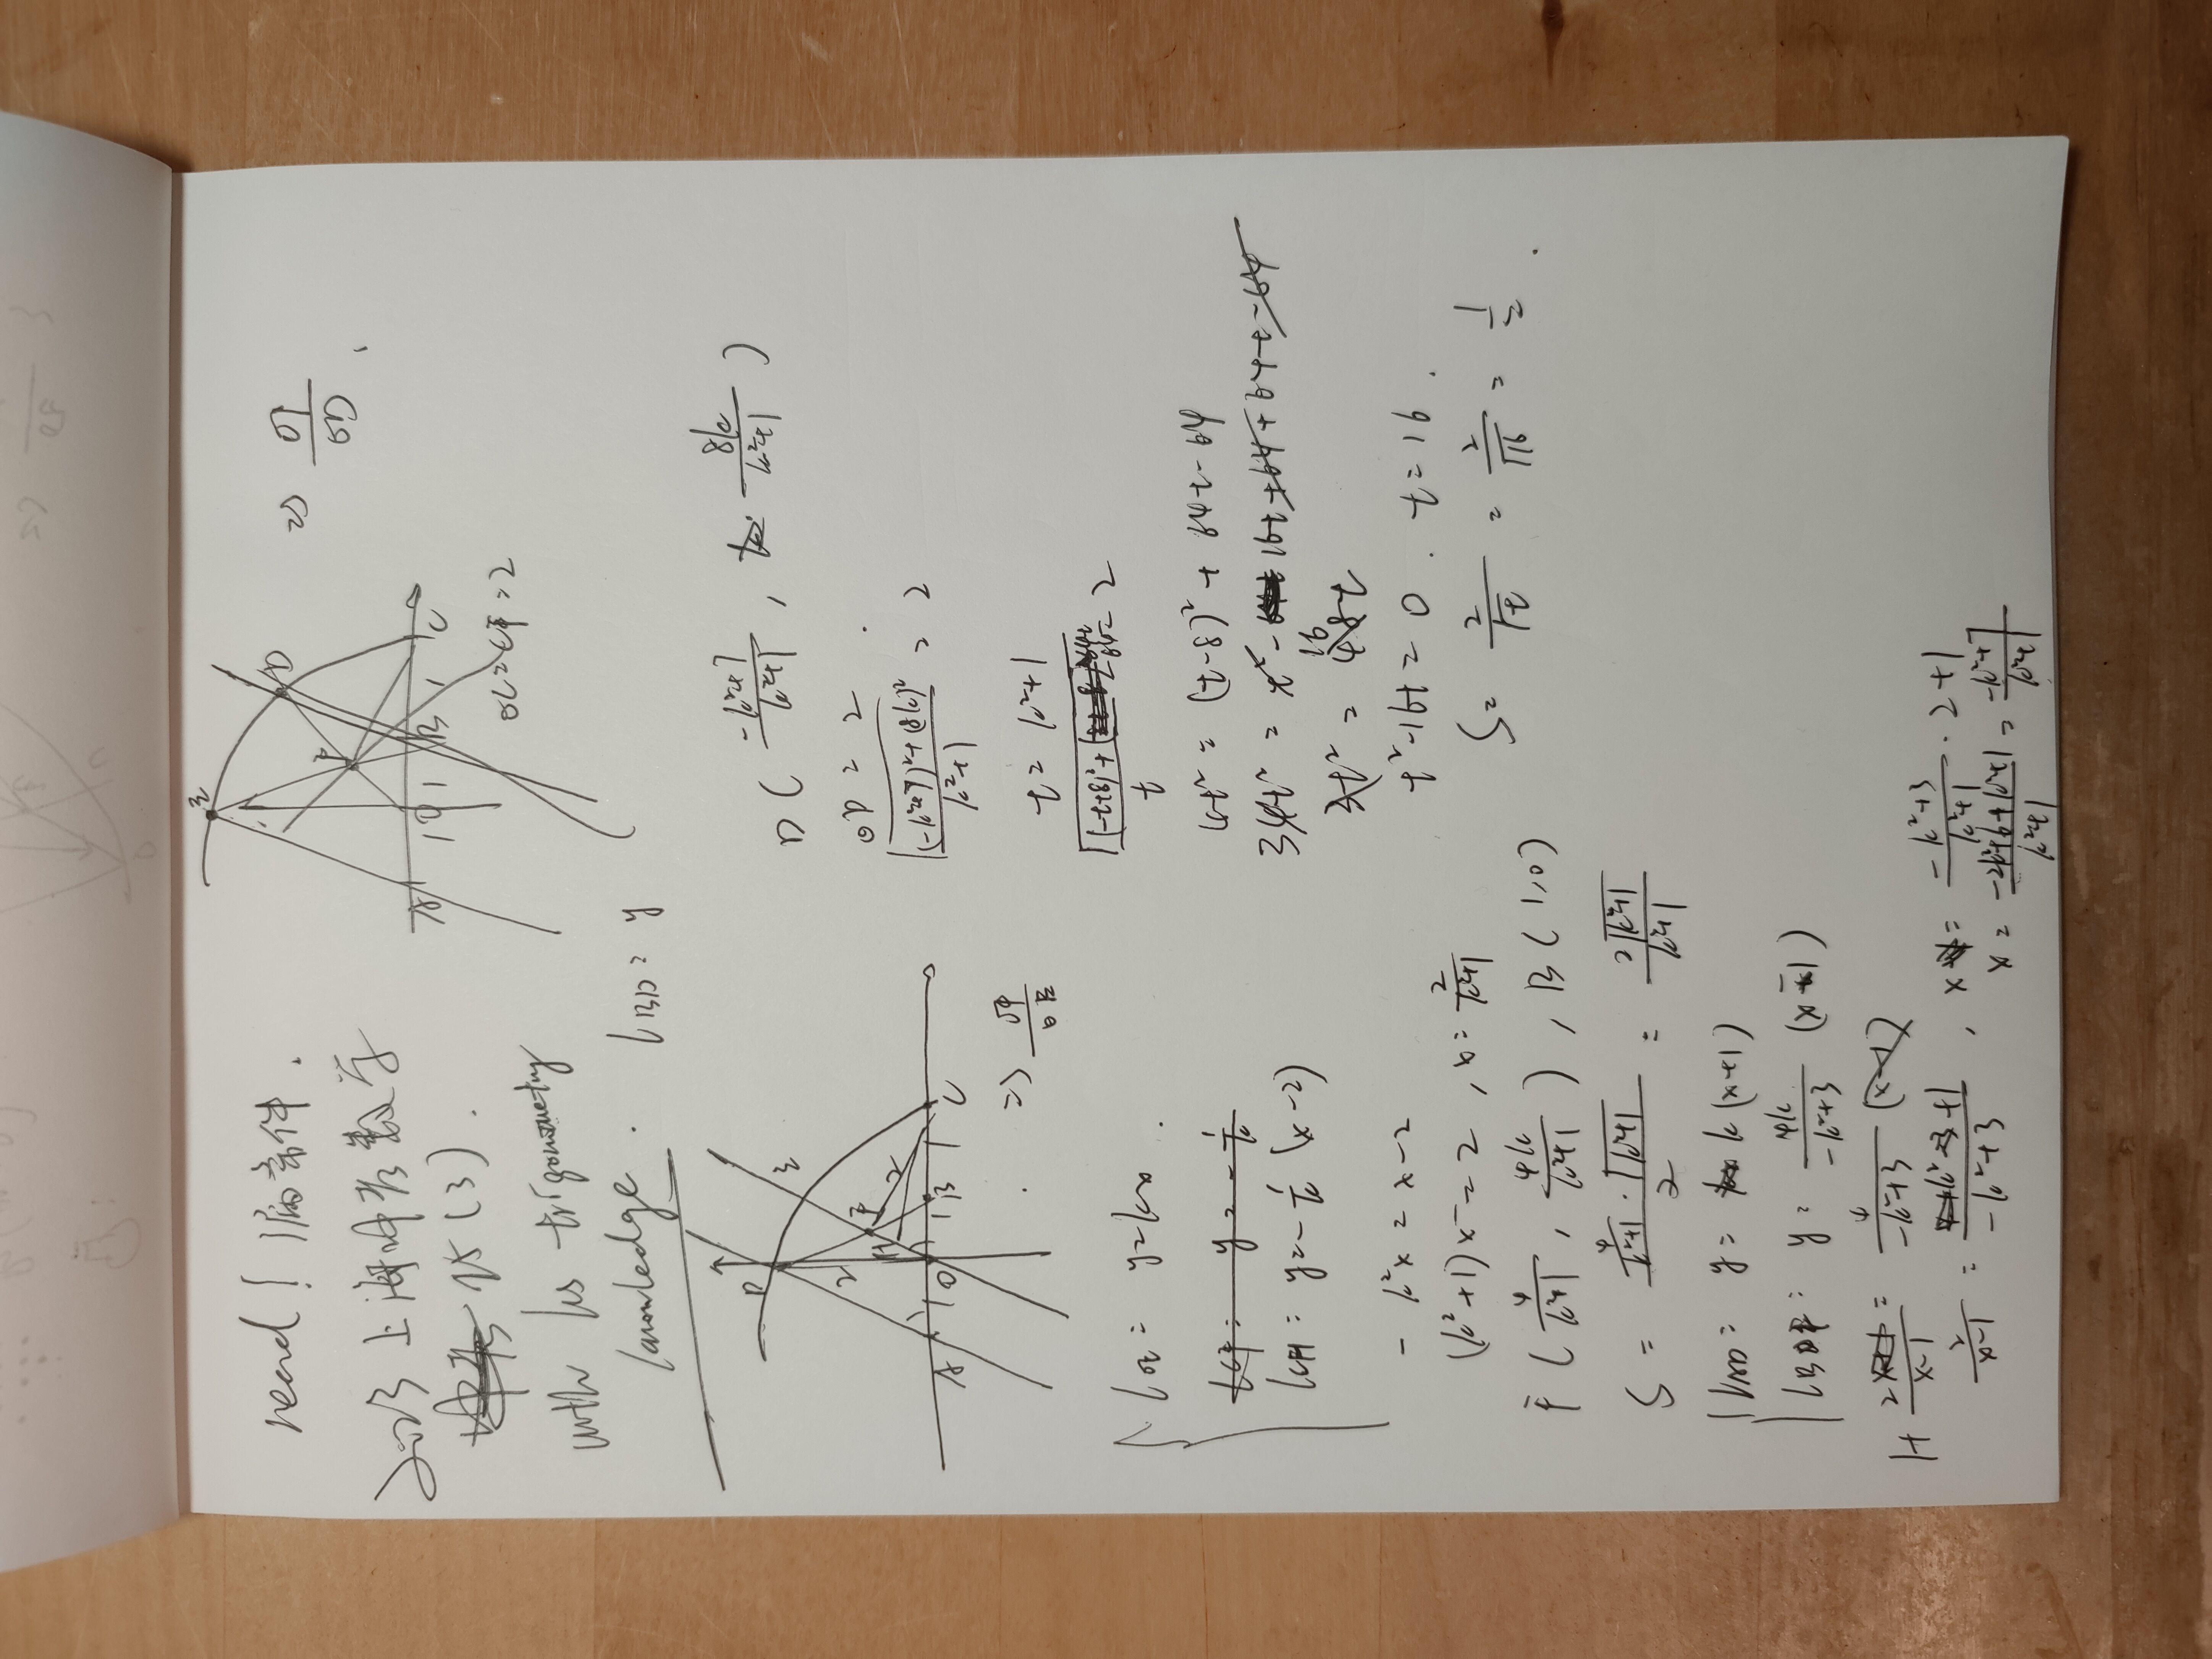 read! 漏条件.
2023 上海中考数学
25(3).
with hs trigonometry
knowledge.
E
D
F
A 1 O 1 B 1 C
OC=CF=2
=> OF/OD
l_BD = y
D
E
2
F
H
2
A 1 O 1 B 1 C
=> OF/OE
l_OE = y=kx.
l_CF = y=-1/k
l_CH = y=-1/k (x-2)
-k²x = x-2
(k²+1)x = 2, x = 2/(k²+1)
F(4/(k²+1), 4k/(k²+1)), B(1,0)
S = (4/(k²+1)·√(k²+1))/2 = 2√(k²+1)/(k²+1)
l_AD = y = k(x+1)
l_BDF = y = 4k/(-k²+3) (x-1)
1+ 2/(x-1) = 4/(-k²+3)
2/(x-1) = (k²+1)/(-k²+3), x = (-k²+3)/(k²+1)·2+1
x = (-2k²+6+k²+1)/(k²+1) = (-k²+7)/(k²+1)
D((-k²+7)/(k²+1), 8k/(k²+1))
OD = 2.
√((-k²+7)²+(8k)²)/(k²+1) = 2
t = k²+1
√((-t+8)²+64t-64)/t = 2
4t² = (t-8)²+64t-64
34t² = t²-16t+64+64t-64
3t² = 48t
16
t²-16t=0. t=16.
S = 2/√t = 2/√16 = 1/2.